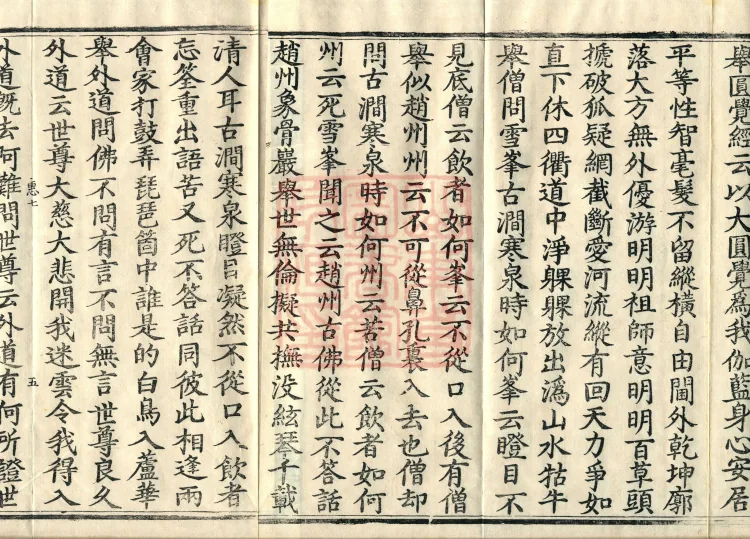 舉圓覺經云以大圓覺爲我伽藍身心安居
平等性智毫髮不留縱橫自由閫外乾坤廓
落大方無外優游明明祖師意明明百草頭
摝破狐疑網截斷愛河流縱有回天力爭如
直下休四衢道中淨躶躶放出溈山水牯牛
舉僧問雪峯古澗寒泉時如何峯云瞪目不
見底僧云飲者如何峯云不從口入後有僧
舉似趙州州云不可從鼻孔裏入去也僧却
問古澗寒泉時如何州云苦僧云飲者如何
州云死雪峯聞之云趙州古佛從此不答話
趙州象骨巖舉世無倫擬共撫没絃琴千載
清人耳古澗寒泉瞪目凝然不從口入飲者
忘筌重出語苦又死不答話同彼此相逢兩
會家打鼓弄琵琶箇中誰是的白鳥入蘆華
舉外道問佛不問有言不問無言世尊良久
外道云世尊大慈大悲開我迷雲令我得入
惠七 五
外道旣去阿難問世尊云外道有何所證世